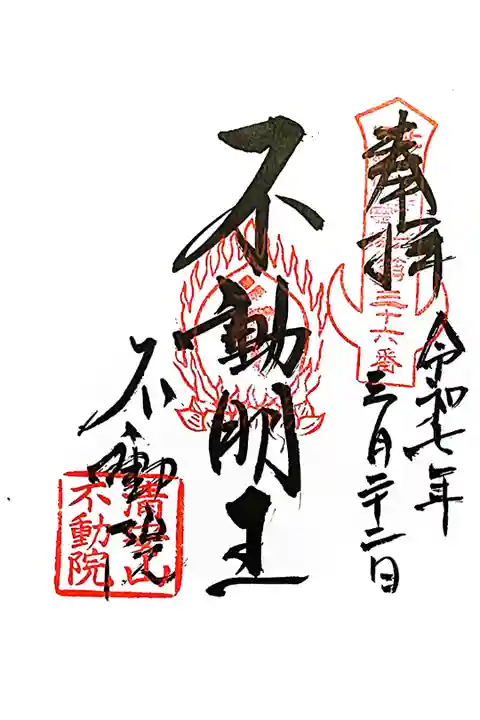 奉拝
三十六番
令和七年
三月二十二日
不動明王
不動院
不動院